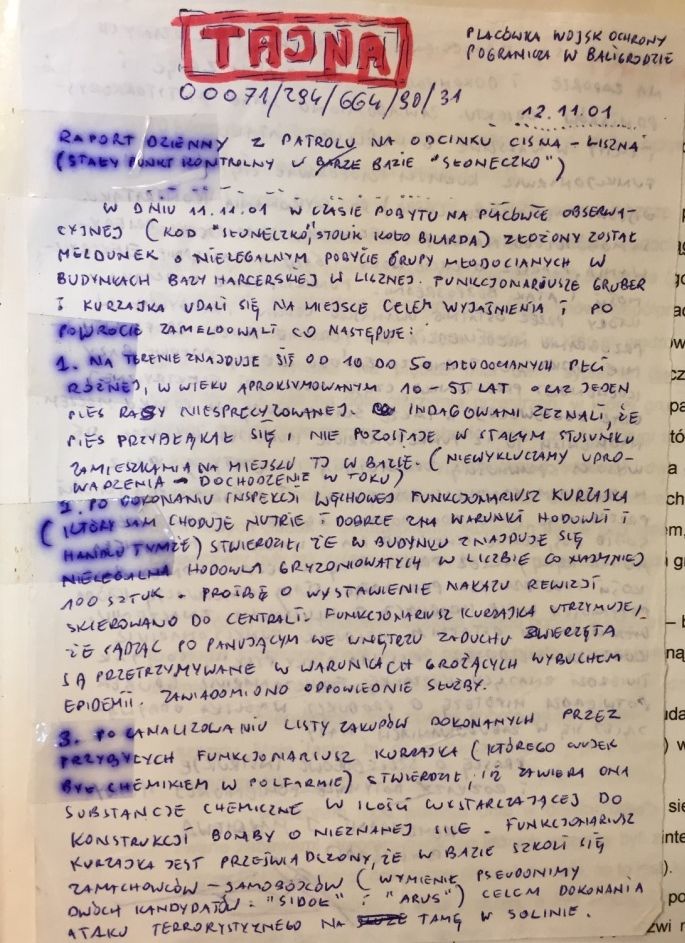 TAJNA
PLACÓWKA WOJSK OCHRONY
POGRANICZA W BALIGRODZIE
00071/294/664/90/31
12.11.01
RAPORT DZIENNY Z PATROLU NA ODCINKU CISNA – LISZNA
(STAŁY PUNKT KONTROLNY W BARZE BAZIE "SŁONECZKO")
W DNIU 11.11.01 W CZASIE POBYTU NA PLACÓWCE OBSERWA-
CYJNEJ (KOD "SŁONECZKO", STOLIK KOŁO BILARDA) ZŁOŻONY ZOSTAŁ
MELDUNEK O NIELEGALNYM POBYCIE GRUPY MŁODOCIANYCH W
BUDYNKACH BAZY HARCERSKIEJ W LICZNEJ. FUNKCJONARIUSZE GRUBER
I KURZAJKA UDALI SIĘ NA MIEJSCE CELEM WYJAŚNIENIA I PO
POWROCIE ZAMELDOWALI CO NASTĘPUJE:
1. NA TERENIE ZNAJDUJE SIĘ OD 10 DO 50 MŁODOCIANYCH PŁCI
RÓŻNEJ, W WIEKU APROKSYMOWANYM 10 – 55 LAT ORAZ JEDEN
PIES RASY NIESPRECYZOWANEJ. INDAGOWANI ZEZNALI, ŻE
PIES PRZYBŁĄKAŁ SIĘ I NIE POZOSTAJE W STAŁYM STOSUNKU
ZAMIESZKANIA NA MIEJSCU TJ W BAZIE. (NIEWYKLUCZAMY UPRO-
WADZENIA – DOCHODZENIE W TOKU)
2. PO DOKONANIU INSPEKCJI WĘCHOWEJ FUNKCJONARIUSZ KURZAJKA
(KTÓRY SAM CHODUJE NUTRIE I DOBRZE ZNA WARUNKI HODOWLI I
HANDLU TYMŻE) STWIERDZIŁ, ŻE W BUDYNKU ZNAJDUJE SIĘ
NIELEGALNA HODOWLA GRYZONIOWATYCH W LICZBIE CO NAJMNIEJ
100 SZTUK. PROŚBĘ O WYSTAWIENIE NAKAZU REWIZJI
SKIEROWANO DO CENTRALI. FUNKCJONARIUSZ KURZAJKA UTRZYMUJE,
ŻE SĄDZĄC PO PANUJĄCYM WE WNĘTRZU ZADUCHU ZWIERZĘTA
SĄ PRZETRZYMYWANE W WARUNKACH GROŻĄCYCH WYBUCHEM
EPIDEMII. ZAWIADOMIONO ODPOWIEDNIE SŁUŻBY.
3. PO ZANALIZOWANIU LISTY ZAKUPÓW DOKONANYCH PRZEZ
PRZYBYŁYCH FUNKCJONARIUSZ KURZAJKA (KTÓREGO WUJEK
BYŁ CHEMIKIEM W POLFARMIE) STWIERDZIŁ, IŻ ZAWIERA ONA
SUBSTANCJE CHEMICZNE W ILOŚCI WYSTARCZAJĄCEJ DO
KONSTRUKCJI BOMBY O NIEZNANEJ SILE. FUNKCJONARIUSZ
KURZAJKA JEST PRZEŚWIADCZONY, ŻE W BAZIE SZKOLI SIĘ
ZAMACHOWCÓW – SAMOBÓJCÓW (WYMIENIŁ PSEUDONIMY
DWÓCH KANDYDATÓW: "SIDOŁ" I "ARUS") CELEM DOKONANIA
ATAKU TERRORYSTYCZNEGO NA TAMĘ W SOLINIE.